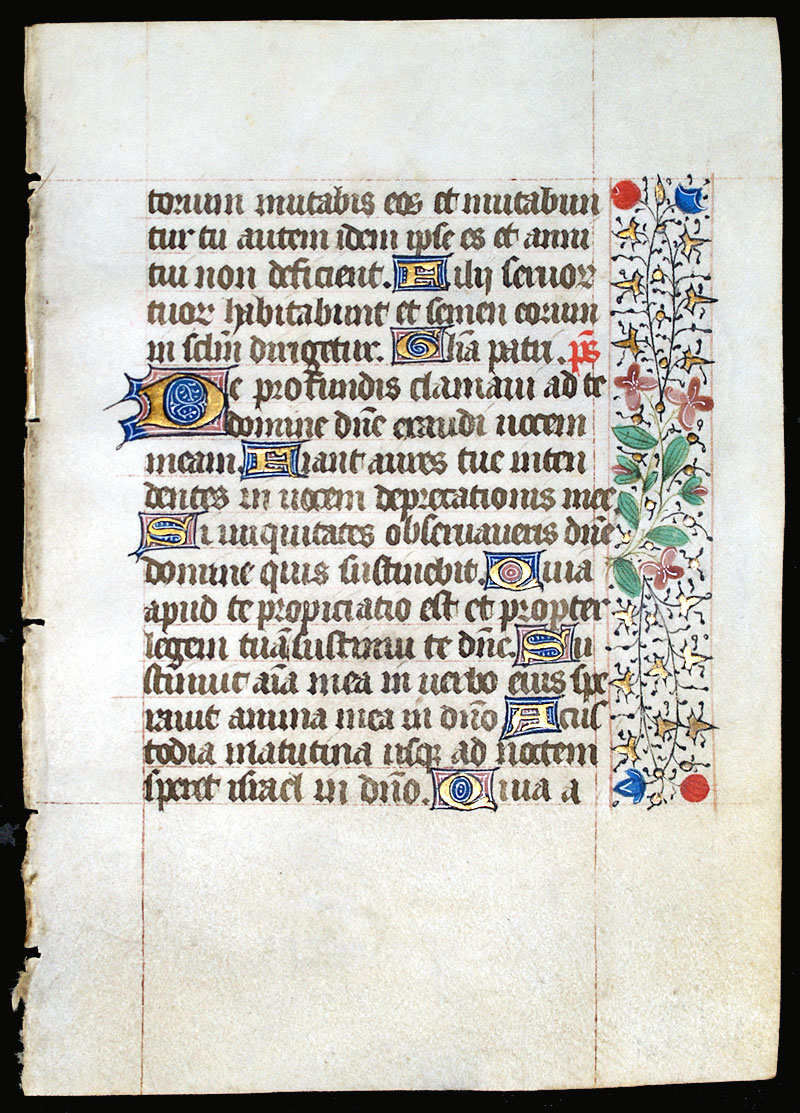 torum mutabis eos et mutabun
tur tu autem idem ipse es et anni
tui non deficient. Filij seruor
tuor habitabunt et semen eorum
in sclm dirigetur. Glia patri. ps
De profundis clamaui ad te
domine dne exaudi uocem
meam. Fiant aures tue inten
dentes in uocem deprecationis mee
Si iniquitates obseruaueris dne
domine quis sustinebit. Quia
apud te propiciatio est et propter
legem tuā sustinui te dne. Su
stinuit aia mea in uerbo eius spe
rauit anima mea in dno A cus
todia matutina usq ad noctem
speret israel in dno. Quia a